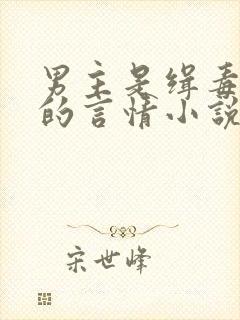 男主是缉毒
的言情小説
宋世峰